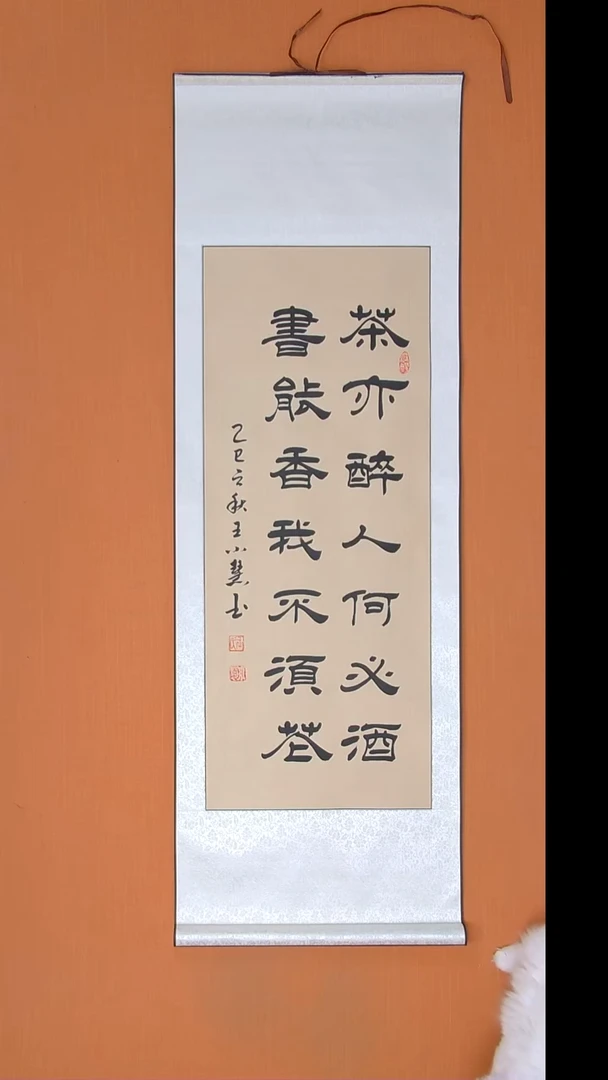 茶亦醉人何必酒
書能香我不須花
乙巳立秋王小慧书